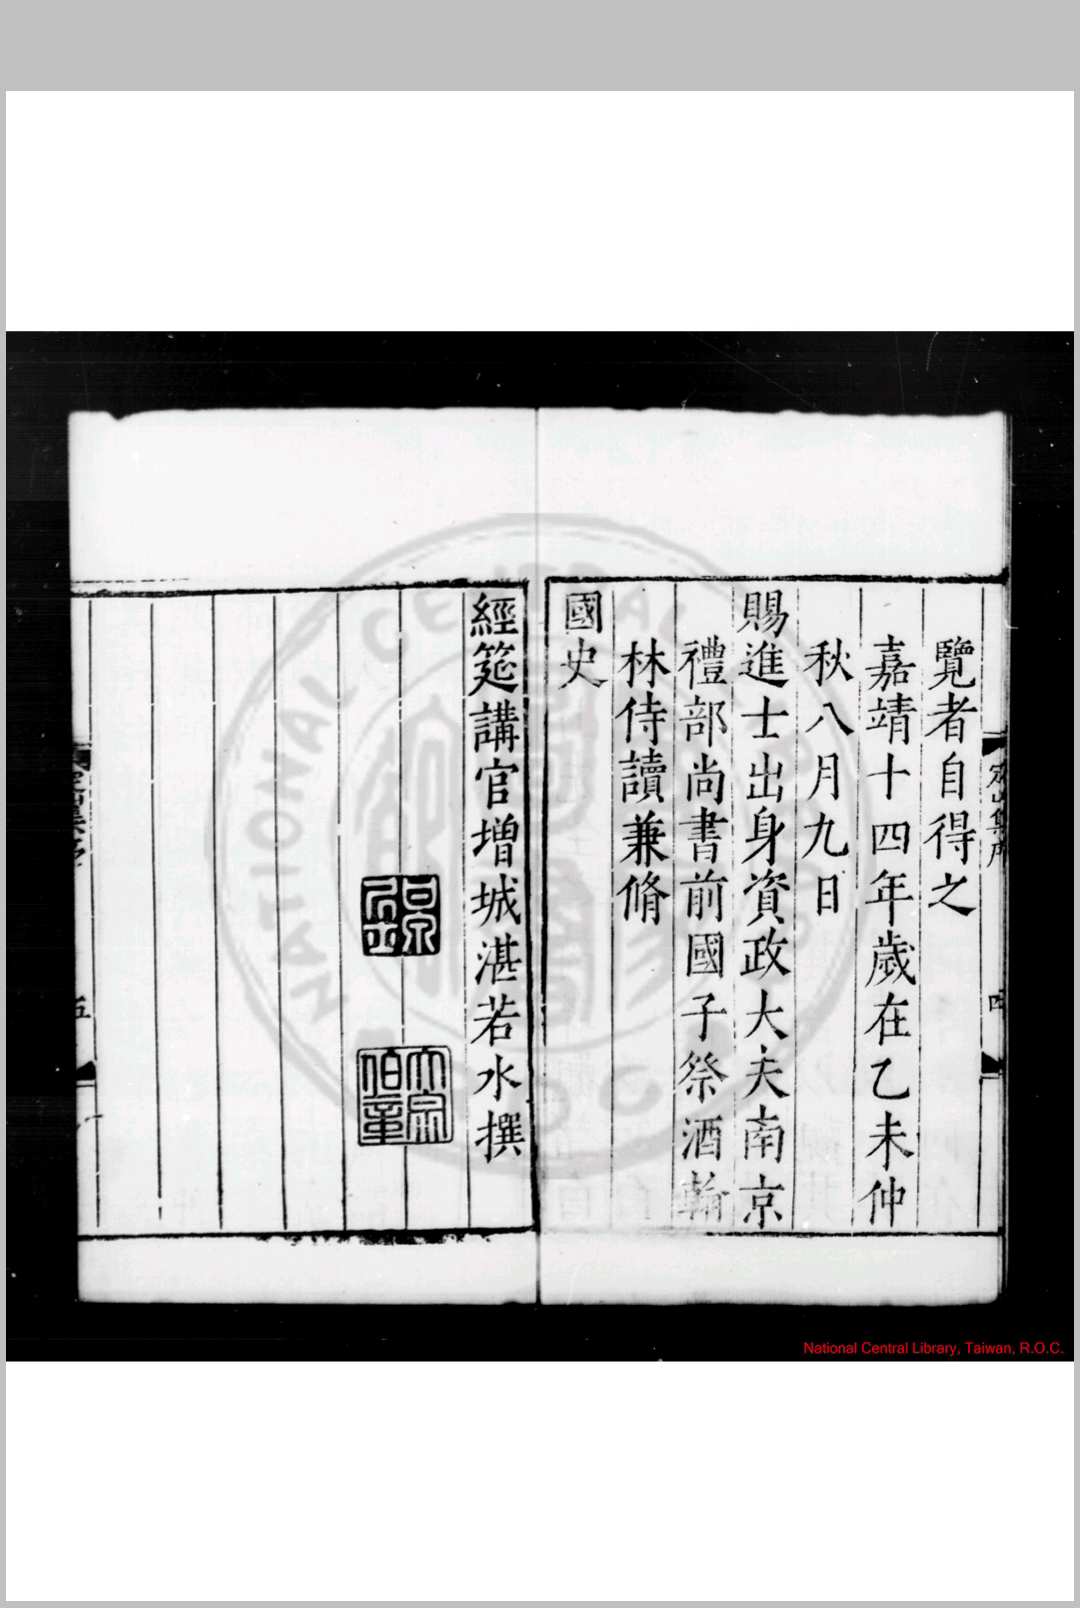 覽者自得之
嘉靖十四年歲在乙未仲
秋八月九日
賜進士出身資政大夫南京
禮部尚書前國子祭酒翰
林侍讀兼脩
國史
經筵講官增城湛若水撰
大宗伯章
四
五
NATIONAL CENTRAL
National Central Library, Taiwan, R.O.C.